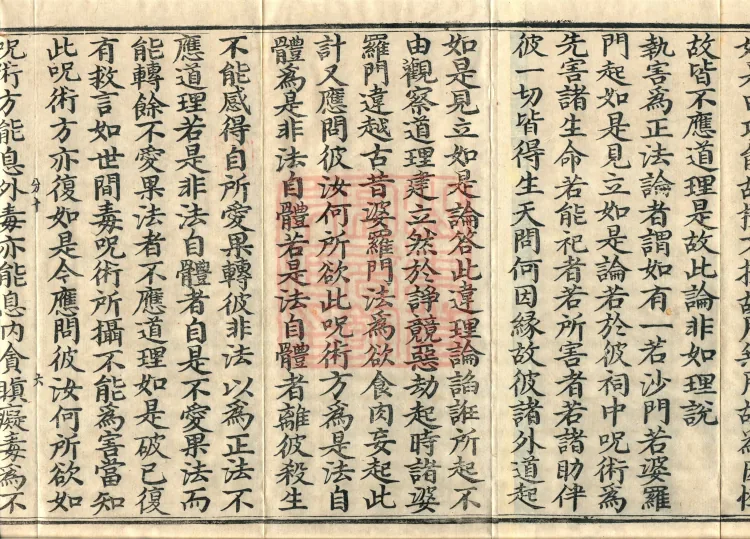 故皆不應道理是故此論非如理說
執害為正法論者謂如有一若沙門若婆羅
門起如是見立如是論若於彼祠中呪術為
先害諸生命若能祀者若所害者若諸助伴
彼一切皆得生天問何因緣故彼諸外道起
如是見立如是論答此違理論諂誑所起不
由觀察道理建立然於諍競惡劫起時諸婆
羅門違越古昔婆羅門法為欲食肉妄起此
計又應問彼汝何所欲此呪術方為是法自
體為是非法自體若是法自體者離彼殺生
不能感得自所愛果轉彼非法以為正法不
應道理若是非法自體者自是不愛果法而
能轉餘不愛果法者不應道理如是破已復
有救言如世間毒呪術所攝不能為害當知
此呪術方亦復如是今應問彼汝何所欲如
呪術方能息外毒亦能息內貪瞋癡毒為不
六